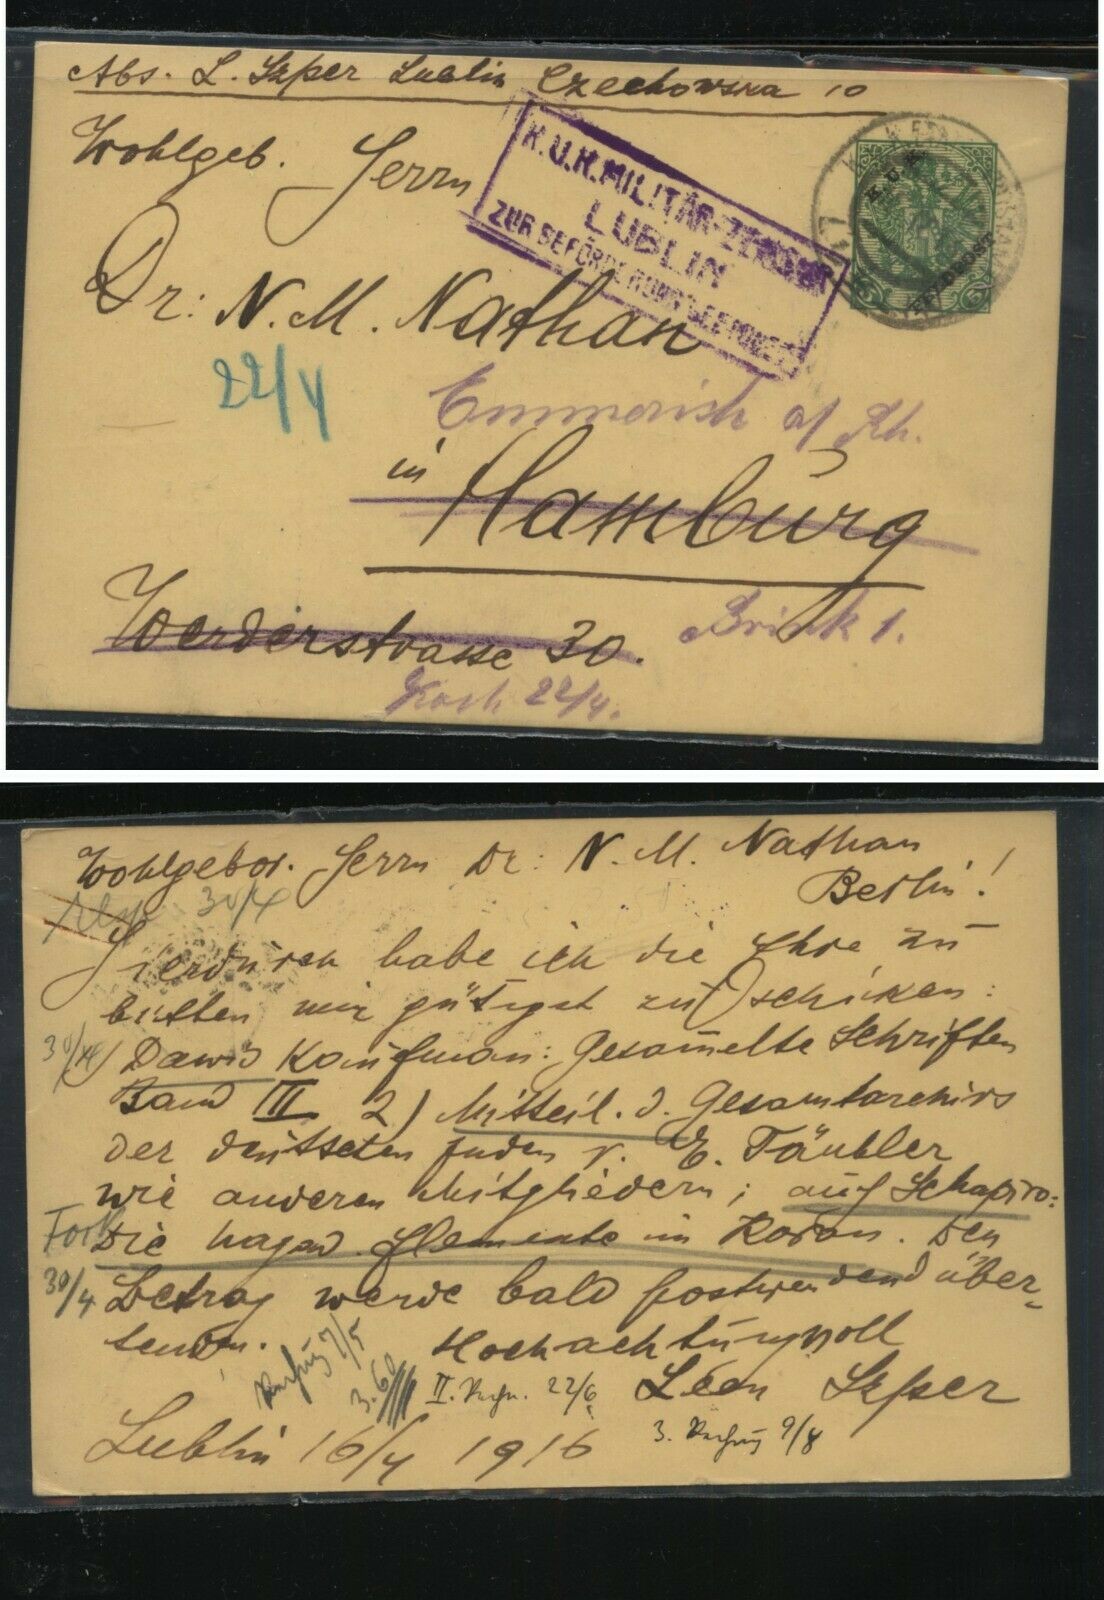 Abs. L. Szper Lublin Czechowska 10
Wohlgeb. Herrn
K.U.K. MILITÄR-ZENSUR
LUBLIN
ZUR BEFÖRDERUNG GEEIGNET
K.U.K.
FELDPOST
Dr: N. M. Nathan
22/4
Emmerich a/Rh.
in Hamburg
Brink 1.
Werderstrasse 30.
Koch 22/4.
Wohlgebor. Herrn Dr: N. M. Nathan
Berlin!
30/4
Hierdurch habe ich die Ehre zu
bitten mir gütigst zu schicken:
30/4 1) Dawid Kaufman: Gesamelte Schriften
Band III 2) Mitteil. d. Gesamtarchivs
der deutschen Juden v. E. Täubler
wie anderen Mitgliedern; auch Schapiro:
Die hagad. Elemente im Koran. Den
30/4 Betrag werde bald postwendend über-
senden. Hochachtungsvoll
7/5
3.60 II. 22/6 Léon Szper
3. 9/8
Lublin 16/4 1916